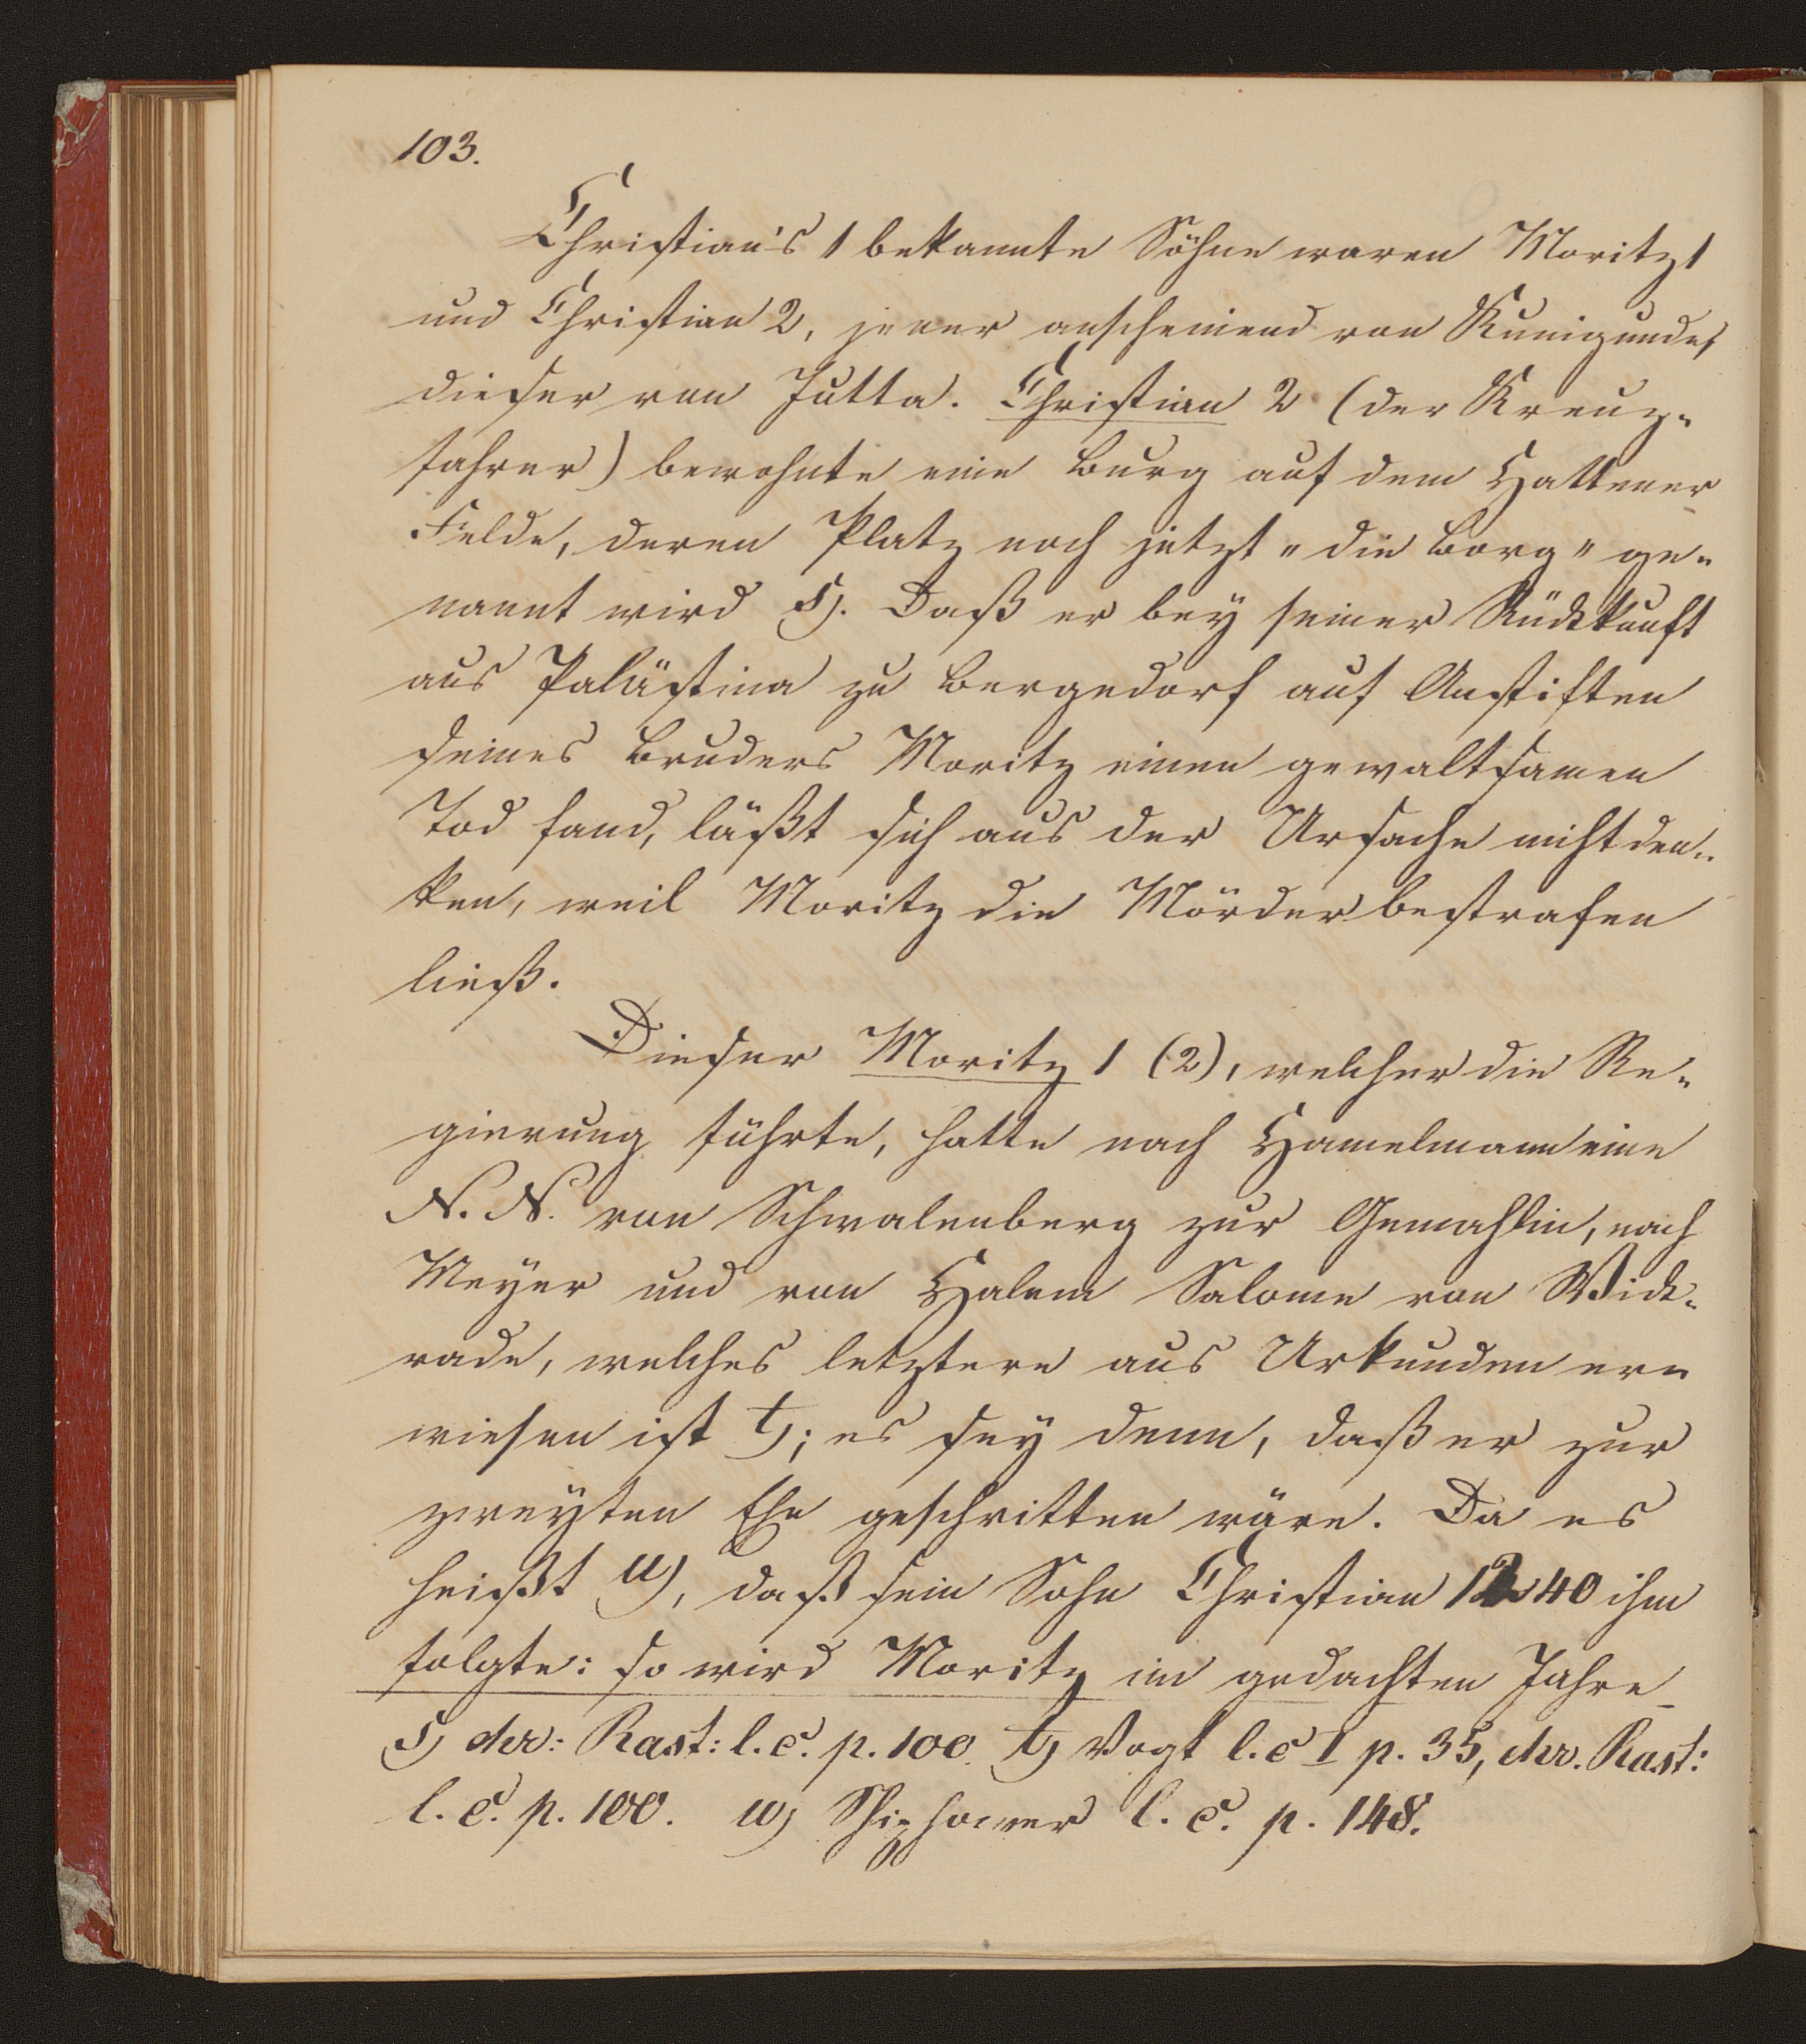 103.
Christian's 1 bekannte Söhne waren Moritz 1
und Christian 2, jener anscheinend von Kunigunde,
dieser von Jutta. Christian 2 (der Kreuz-
fahrer) bewohnte eine Burg auf dem Hattener
Felde, deren Platz noch jetzt "die Borg" ge-
nannt wird s). Daß er bey seiner Rückkunft
aus Palästina zu Bergedorf auf Anstiften
seines Bruders Moritz einen gewaltsamen
Tod fand, läßt sich aus der Ursache nicht den-
ken, weil Moritz die Mörder bestrafen
ließ.
Dieser Moritz 1 (2), welcher die Re-
gierung führte, hatte nach Hamelmann eine
N. N. von Schwalenberg zur Gemahlin, nach
Meyer und von Halem Salome von Wick-
rade, welches letztere aus Urkunden er-
wiesen ist t); es sey denn, daß er zur
zweyten Ehe geschritten wäre. Da es
heißt u), daß sein Sohn Christian 1240 ihm
folgte: so wird Moritz im gedachten Jahre
s) chr: Rast: l. c. p. 100. t) Vogt l. c I p. 35, chr. Rast:
l. c. p. 100. u) Schiphower l. c. p. 148.